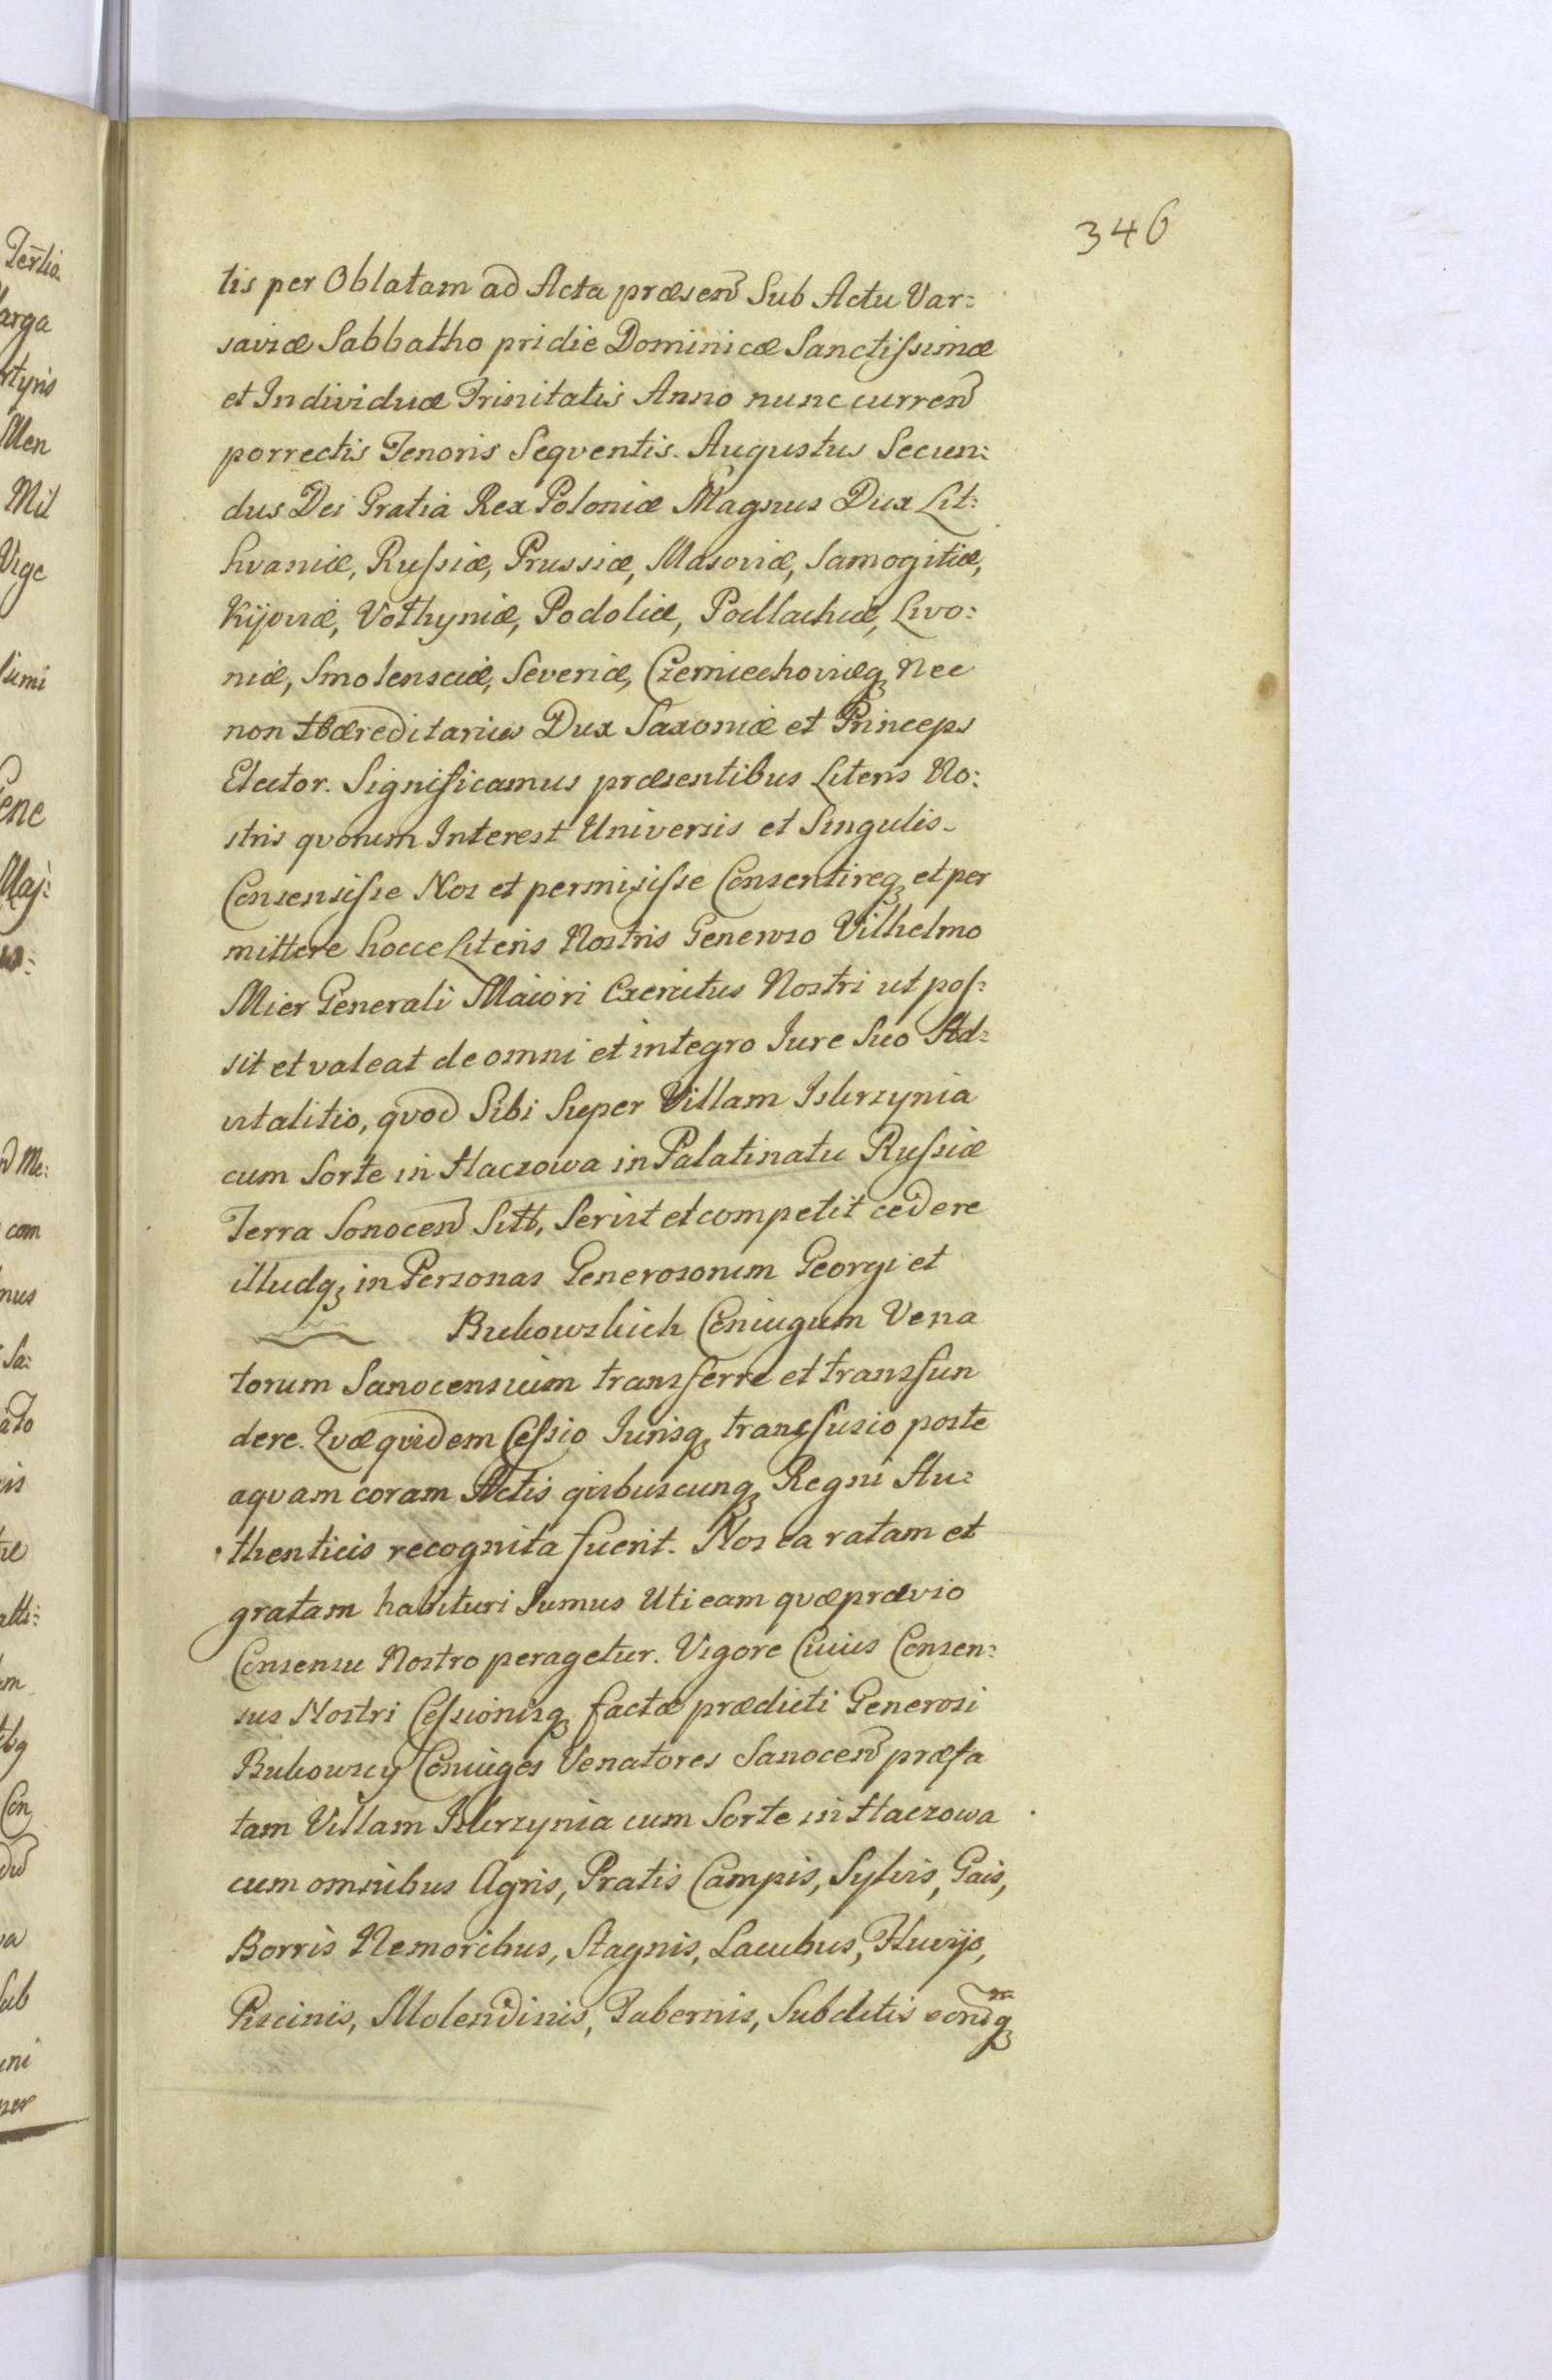 346
tis per Oblatam ad Acta præsen Sub Actu Var:
saviæ Sabbatho pridie Dominicæ Sanctissimæ
et Individuæ Trinitatis Anno nunc curren
porrectis Tenoris Seqventis. Augustus Secun:
dus Dei Gratia Rex Poloniæ Magnus Dux Lit:
hvaniæ, Russiæ, Prussiæ, Masoviæ, Samogitiæ,
Kijoviæ, Volhyniæ, Podoliæ, Podlachiæ, Livo:
niæ, Smolensciæ, Severiæ, Czerniechoviæq Nec
non Hæreditarius Dux Saxoniæ et Princeps
Elector. Significamus præsentibus Literis No:
stris qvorum Interest Universis et Singulis
Consensisse Nos et permisisse Consentireq et per
mittere hocce Literis Nostris Generoso Vilhelmo
Mier Generali Maiori Exercitus Nostri ut pos:
sit et valeat de omni et integro Jure Suo Ad:
vitalitio, qvod Sibi Super Villam Iskrzynia
cum Sorte in Haczowa in Palatinatu Russiæ
Terra Sonocen Sitt, Servit et competit cedere
illudq in Personas Generosorum Georgi et
Bukowskich Coniugum Vena
torum Sanocensium transferre et transfun
dere. Qvæ qvidem Cessio Jurisq transfusio poste
aqvam coram Actis qvibuscunq Regni Au:
thenticis recognita fuerit. Nos ea ratam et
gratam habituri Sumus Uti eam qvæ prævio
Consensu Nostro peragetur. Vigore Cuius Consen:
sus Nostri Cessionisq factæ prædicti Generosi
Bukowscy Coniuges Venatores Sanocen præfa
tam Villam Iskrzynia cum Sorte in Haczowa
cum omnibus Agris, Pratis Campis, Sylvis, Gais,
Borris Nemoribus, Stagnis, Lacubus, Fluvijs,
Piscinis, Molendinis, Tabernis, Subditis eorūmq